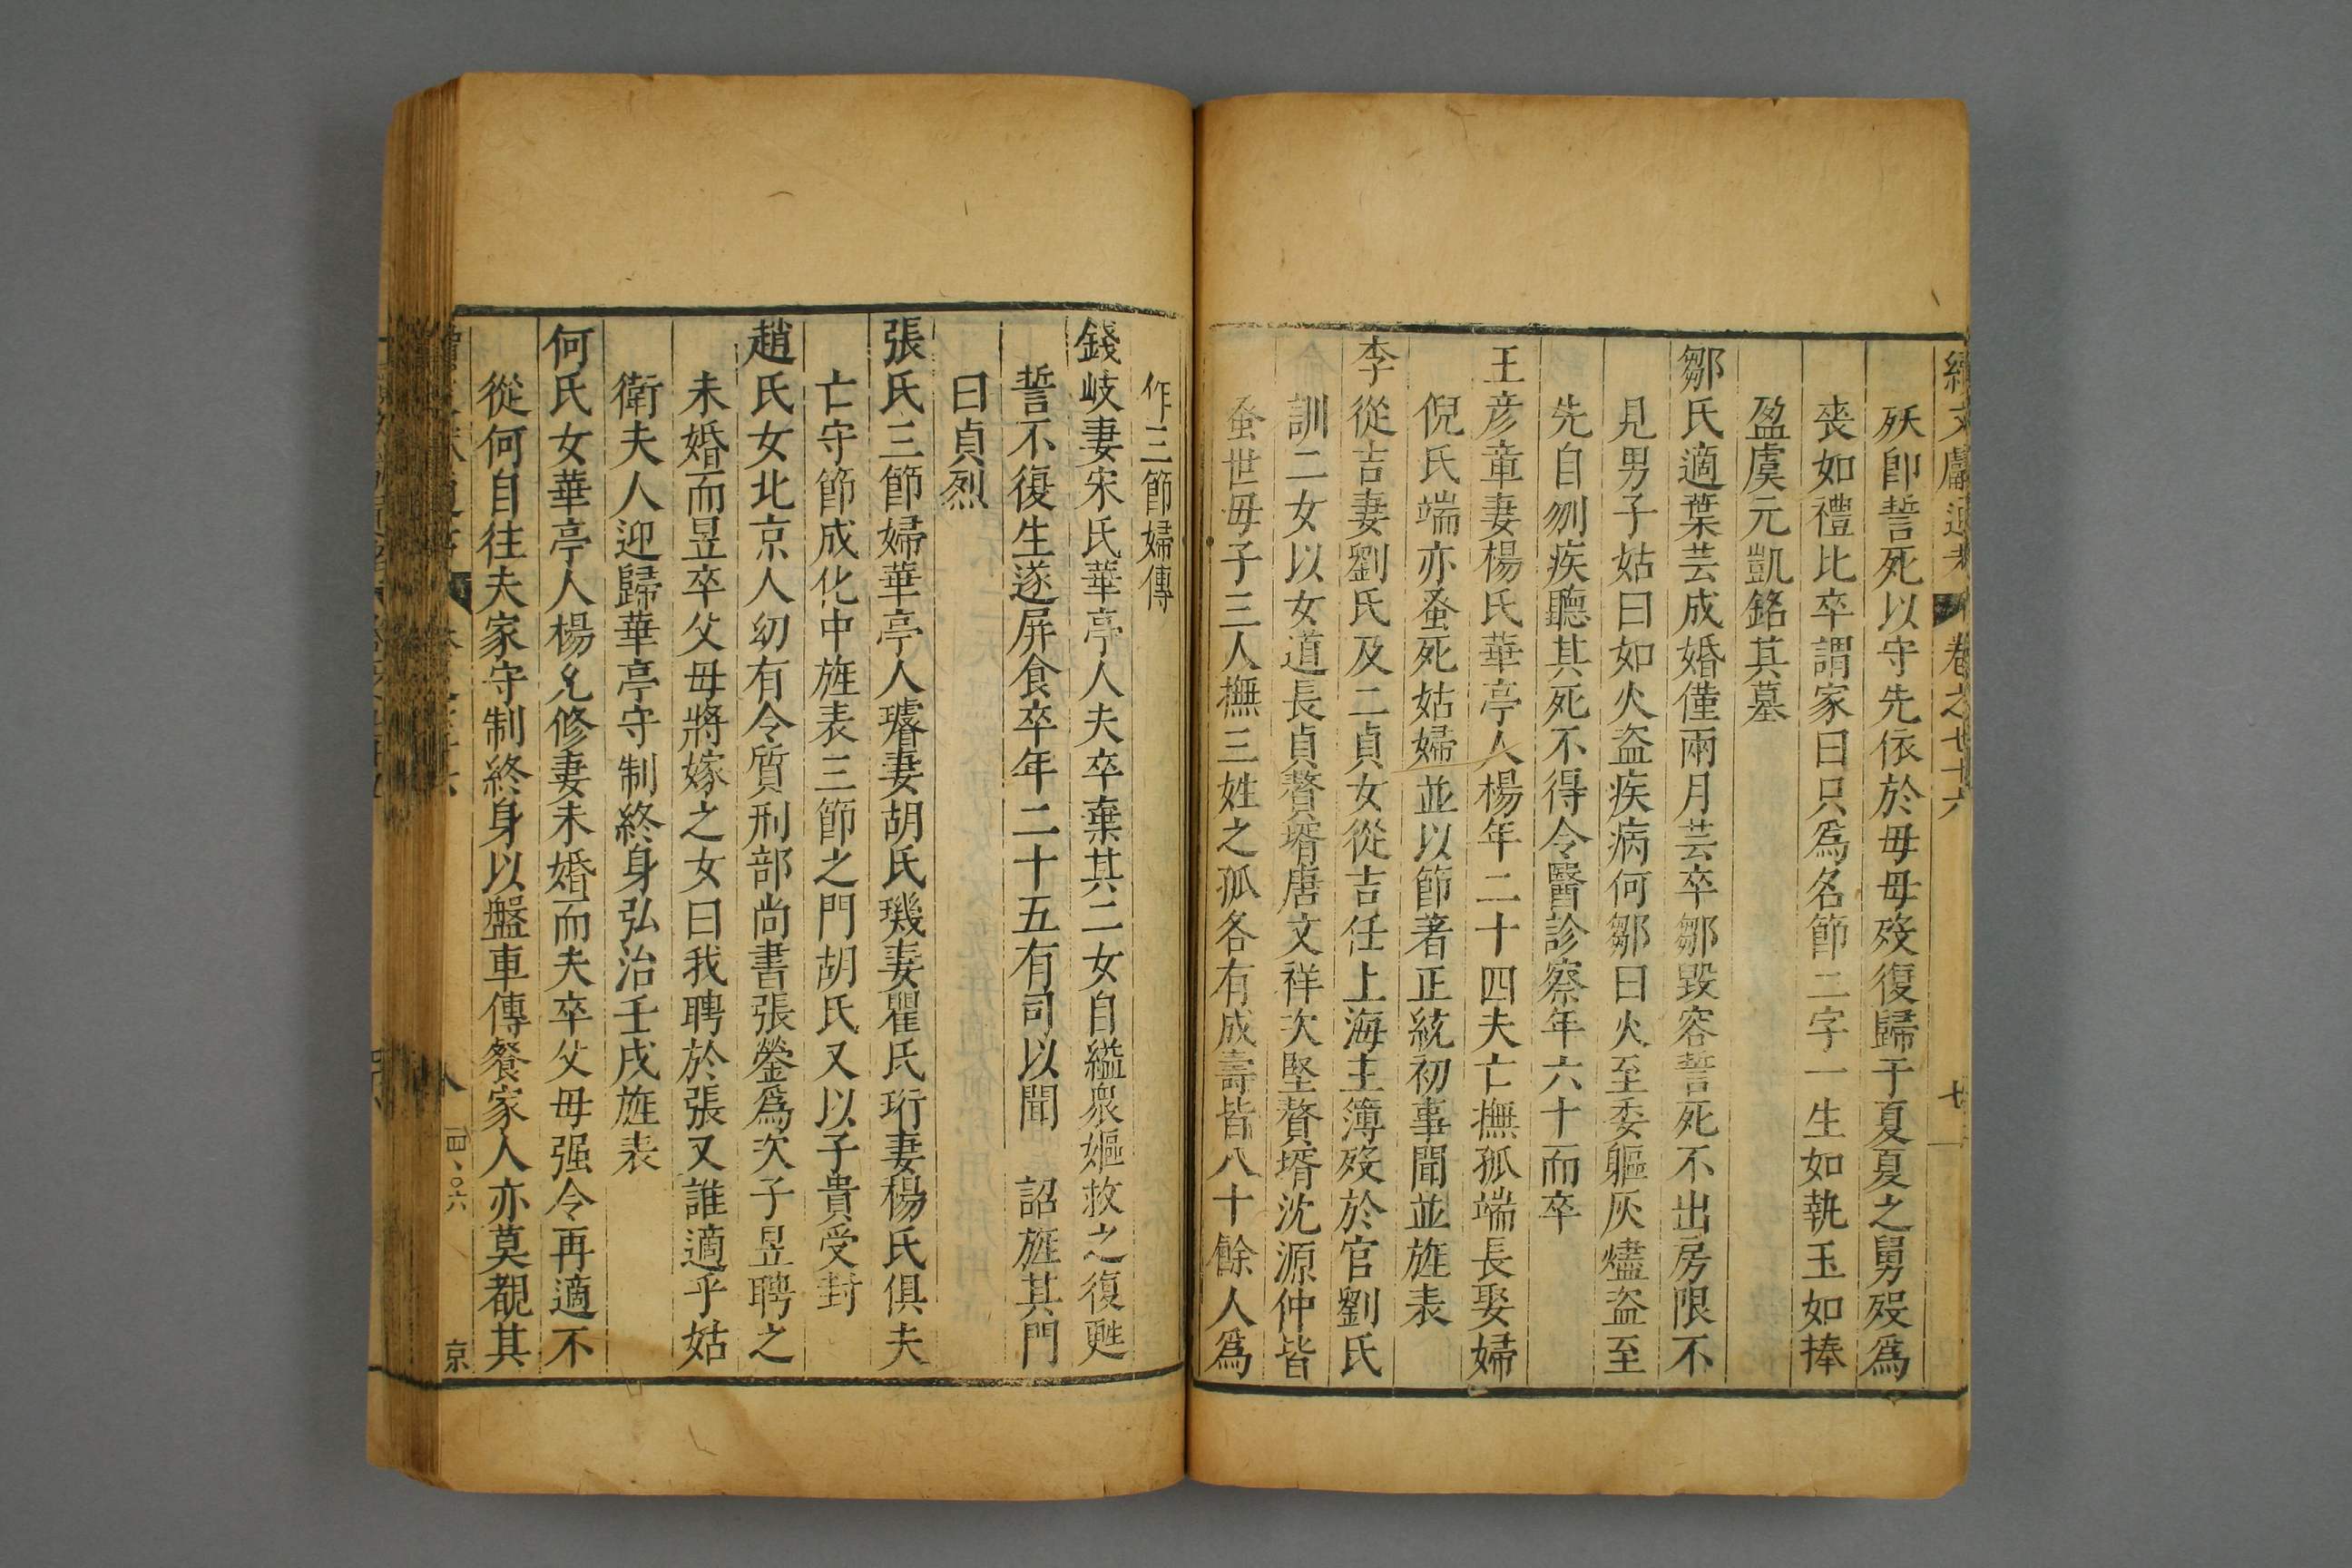 續文獻通考 卷之七十六 七
殀卽誓死以守先依於母母歿復歸于夏夏之舅歿爲
喪如禮比卒謂家曰只爲名節二字一生如執玉如捧
盈虞元凱銘其墓
鄒氏適葉芸成婚僅兩月芸卒鄒毀容誓死不出房限不
見男子姑曰如火盗疾病何鄒曰火至委軀灰燼盗至
先自刎疾聽其死不得令醫診察年六十而卒
王彦章妻楊氏華亭人楊年二十四夫亡撫孤端長娶婦
倪氏端亦蚤死姑婦並以節著正統初事聞並旌表
李從吉妻劉氏及二貞女從吉任上海主簿歿於官劉氏
訓二女以女道長貞贅壻唐文祥次堅贅壻沈源仲皆
蚤世母子三人撫三姓之孤各有成壽皆八十餘人爲
作三節婦傳
錢岐妻宋氏華亭人夫卒棄其二女自縊衆嫗救之復甦
誓不復生遂屏食卒年二十五有司以聞 詔旌其門
曰貞烈
張氏三節婦華亭人璿妻胡氏璣妻瞿氏珩妻楊氏俱夫
亡守節成化中旌表三節之門胡氏又以子貴受封
趙氏女北京人幼有令質刑部尚書張鎣爲次子昱聘之
未婚而昱卒父母將嫁之女曰我聘於張又誰適乎姑
衛夫人迎歸華亭守制終身弘治壬戌旌表
何氏女華亭人楊允修妻未婚而夫卒父母强令再適不
從何自往夫家守制終身以盤車傳餐家人亦莫覩其
八 四、〇六 京